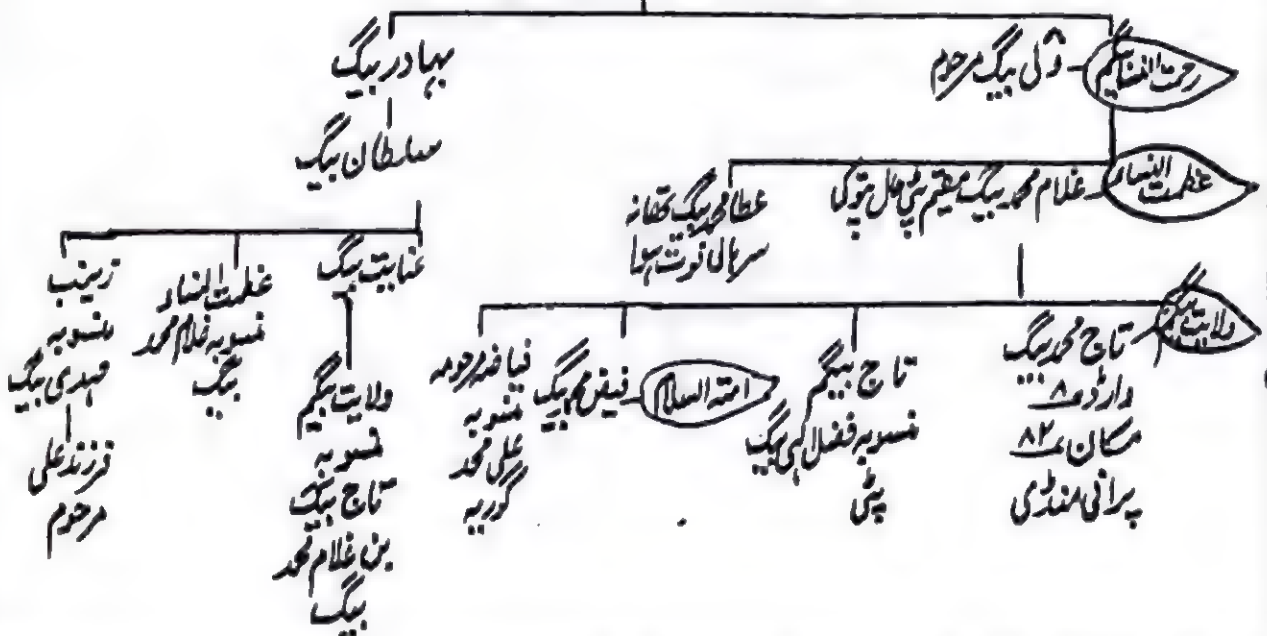 رحمت النساء بیگم
ولی بیگ مرحوم
بہادر بیگ
سلطان بیگ
عظمت النساء
غلام محمد بیگ مقیم پٹی حال پتوکی
عطا محمد بیگ تھانہ
سرہالی فوت ہوا
ولایت بیگم
تاج محمد بیگ
وارڈ ۸
مکان ۸۲
پرانی منڈی
تاج بیگم
منسوبہ فضل الہی بیگ
پٹی
امتہ السلام
فیض محمد بیگ
مرحومہ
منسوبہ
علی محمد
گوریہ
عنایت بیگ
ولایت بیگم
منسوبہ
تاج بیگ
بن غلام محمد
بیگ
عظمت النساء
منسوبہ غلام محمد
بیگ
زینب
منسوبہ
مہدی بیگ
فرزند علی
مرحوم